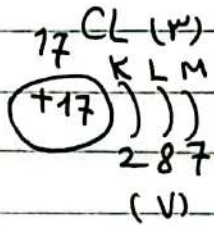 17 CL (٣)
K L M
+17 ) ) )
2 8 7
(V)